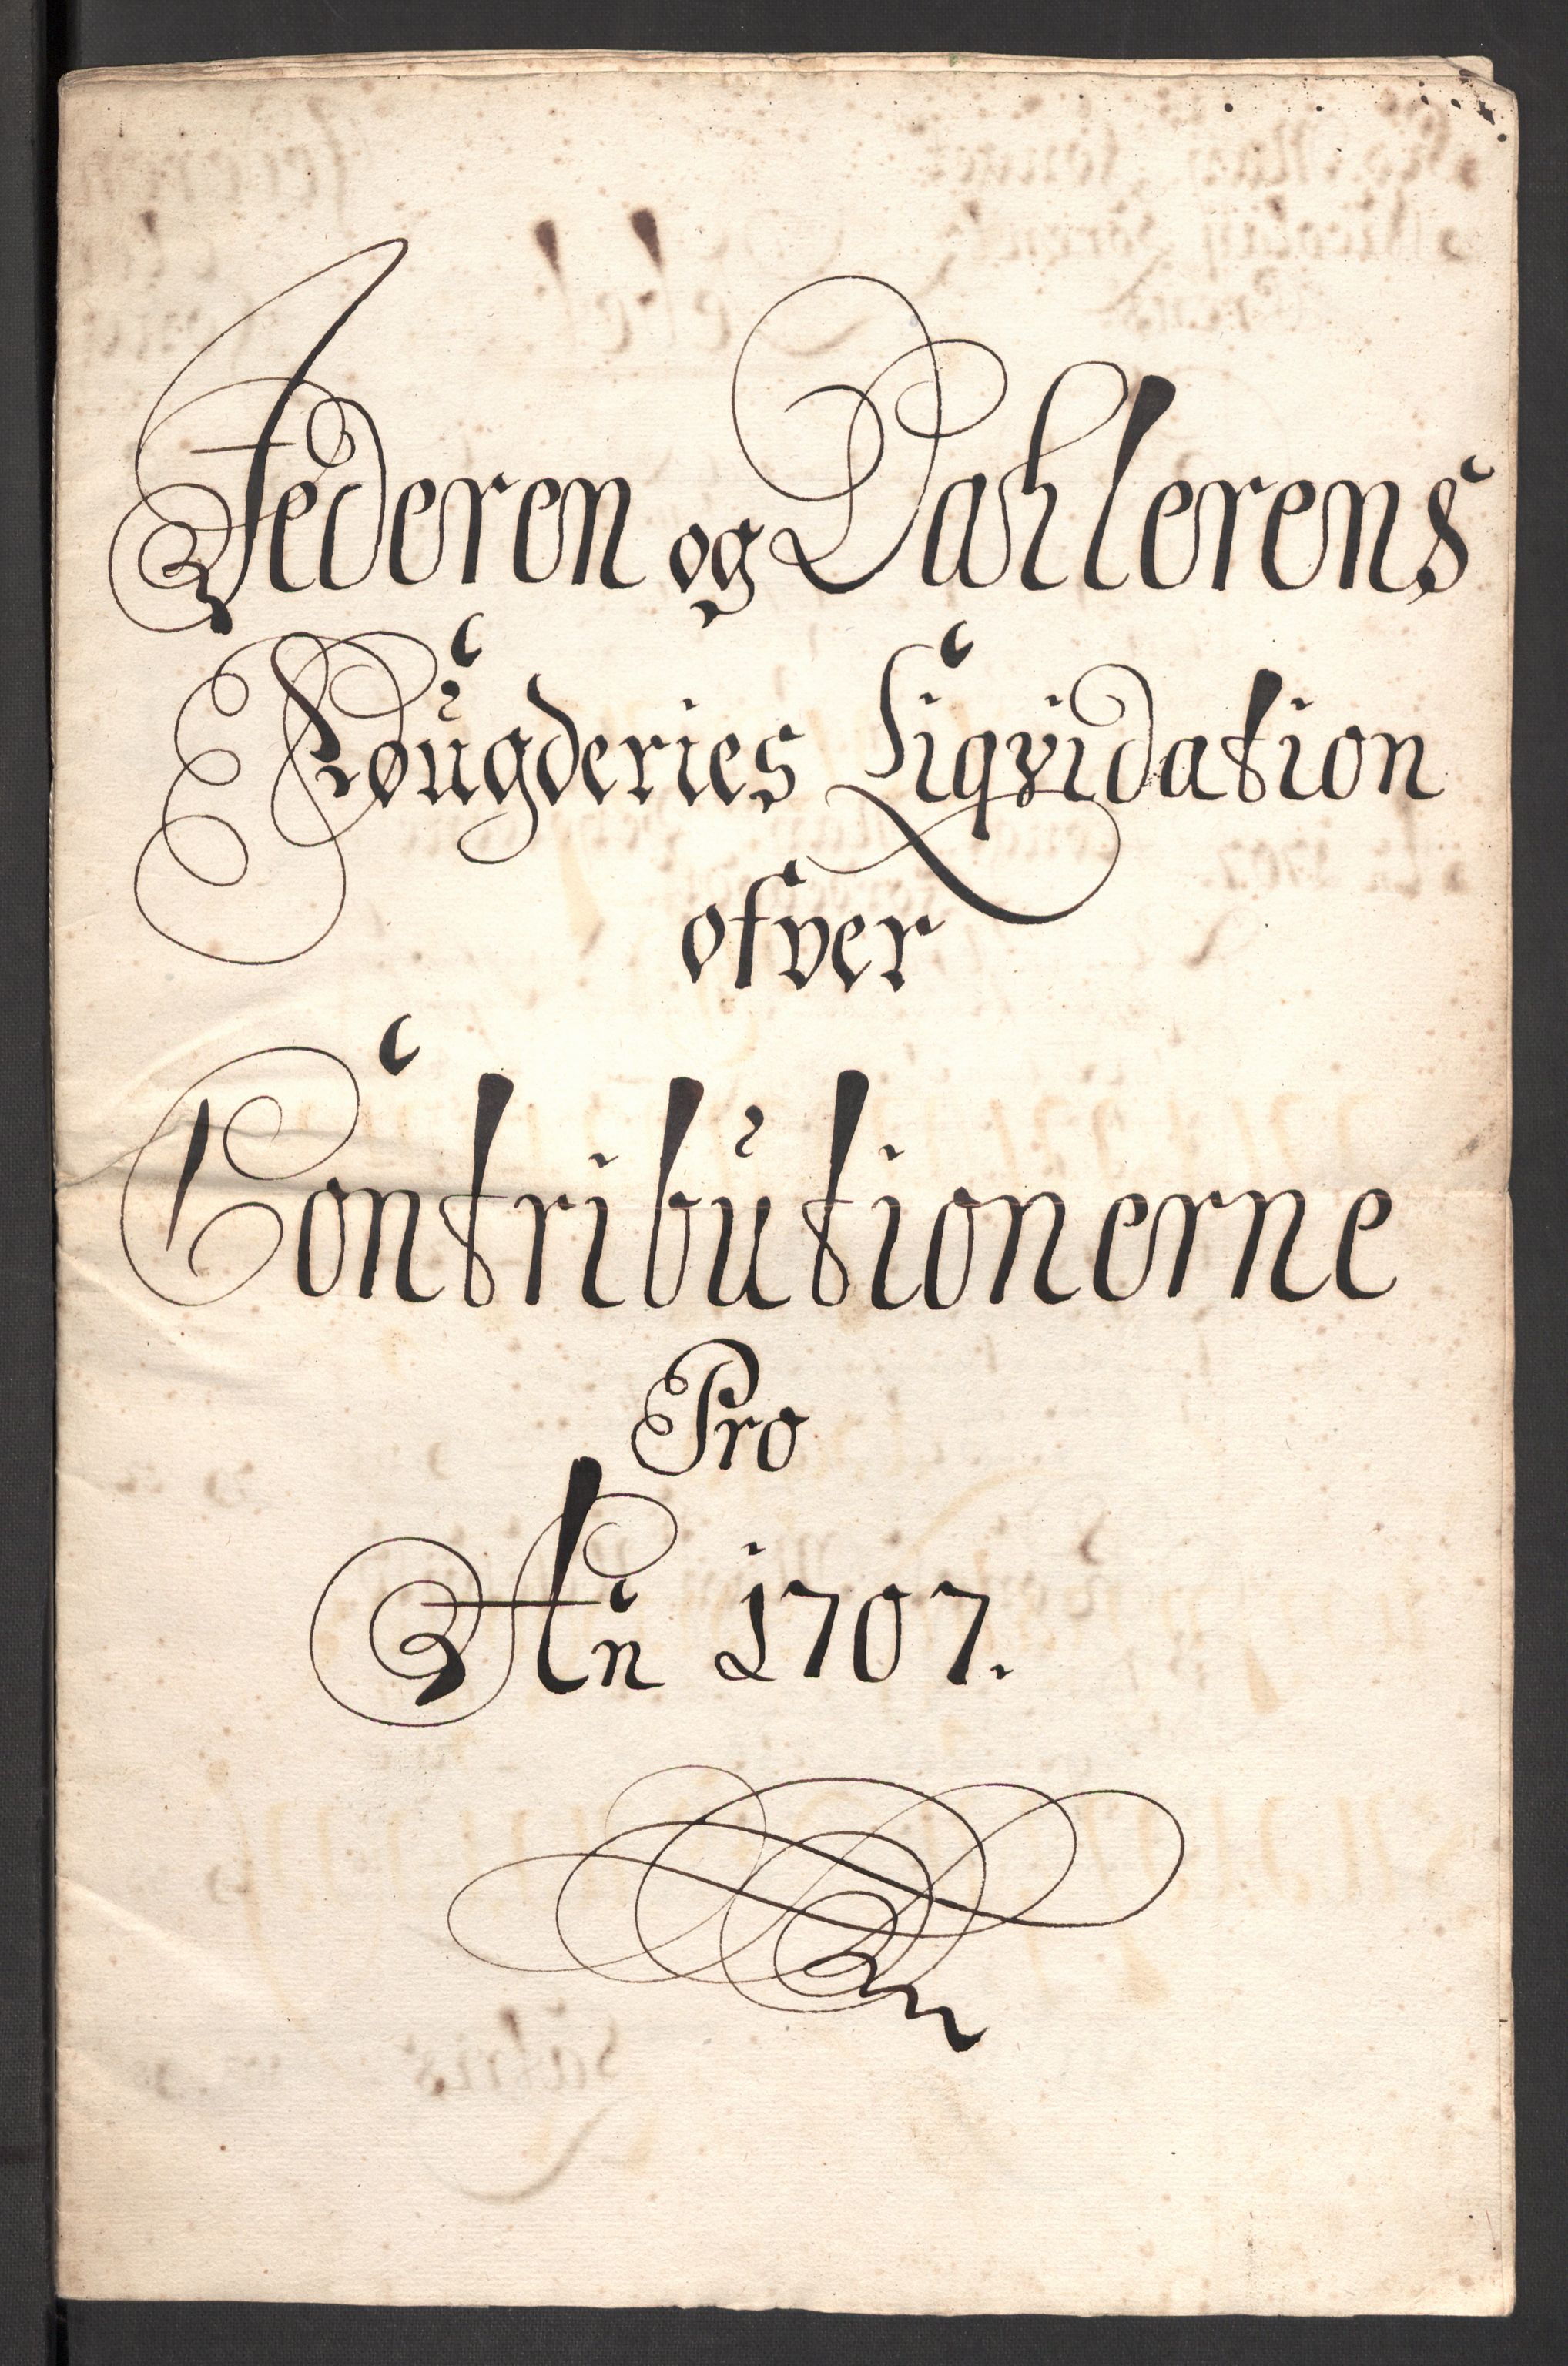 Jederen og Dahlerens
Fougderies Liqvidation
ofver
Contributionerne
Pro
An̄ 1707.